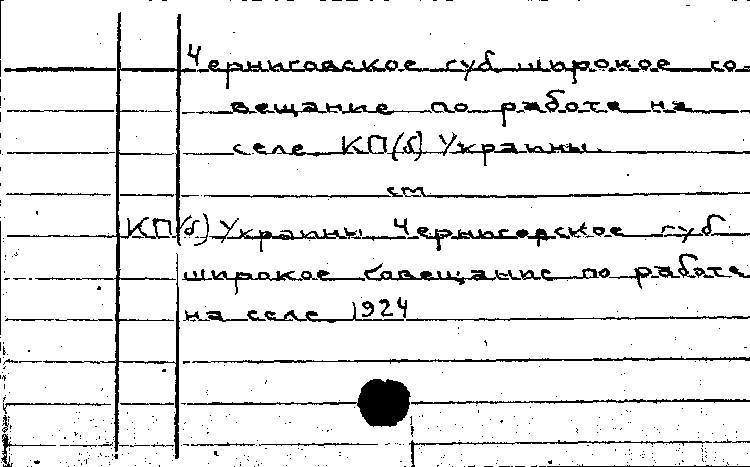 Черниговское губ широкое со-
вещание по работе на
селе КП(б) Украины.
см
КП(б) Украины Черниговское губ
широкое совещание по работе
на селе 1924